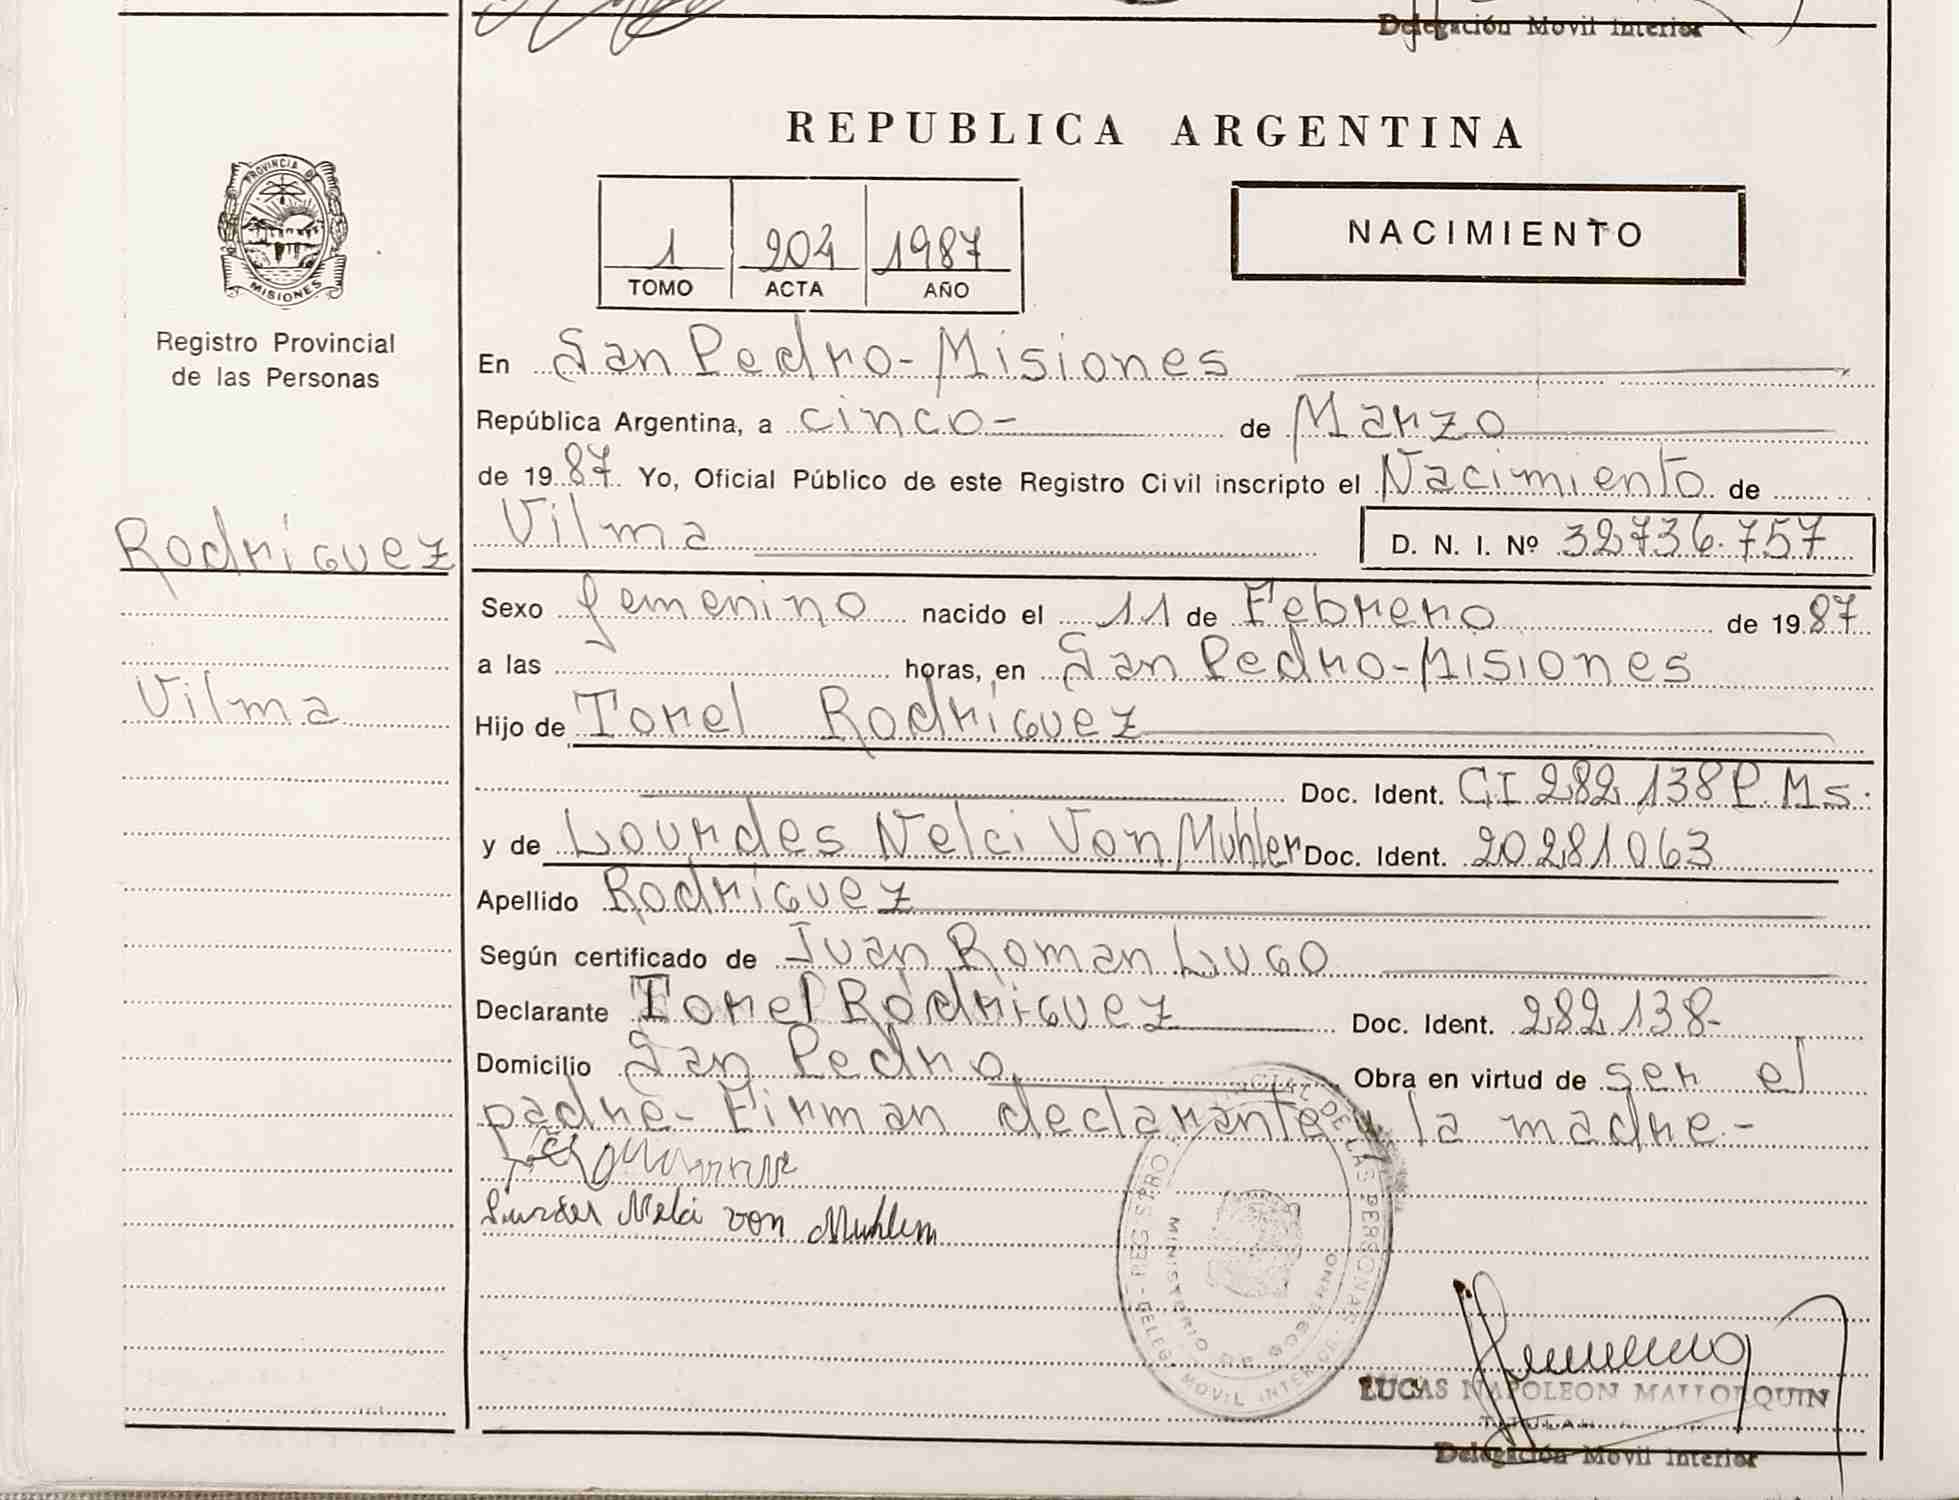 Delegación Movil Interior
REPUBLICA ARGENTINA
PROVINCIA DE
MISIONES
Registro Provincial
de las Personas
1 204 1987
TOMO ACTA AÑO
NACIMIENTO
En San Pedro-Misiones
República Argentina, a cinco- de Marzo
de 1987 Yo, Oficial Público de este Registro Civil inscripto el Nacimiento de
Rodríguez
Vilma D. N. I. Nº 32736.757
Sexo femenino nacido el 11 de Febrero de 1987
a las horas, en San Pedro-Misiones
Vilma
Hijo de Torel Rodríguez
Doc. Ident. CI 282138 P. Ms.
y de Lourdes Nelci Von Muhler Doc. Ident. 20281063
Apellido Rodríguez
Según certificado de Juan Roman Lugo
Declarante Torel Rodríguez Doc. Ident. 282138-
Domicilio San Pedro Obra en virtud de ser el
padre- Firman declarante y la madre.-
Nelci von Muhlem
REGISTRO PROVINCIAL DE LAS PERSONAS
MINISTERIO DE GOBIERNO
DELEG. MOVIL INTERIOR
LUCAS NAPOLEON MALLORQUIN
TITULAR
Delegación Movil Interior